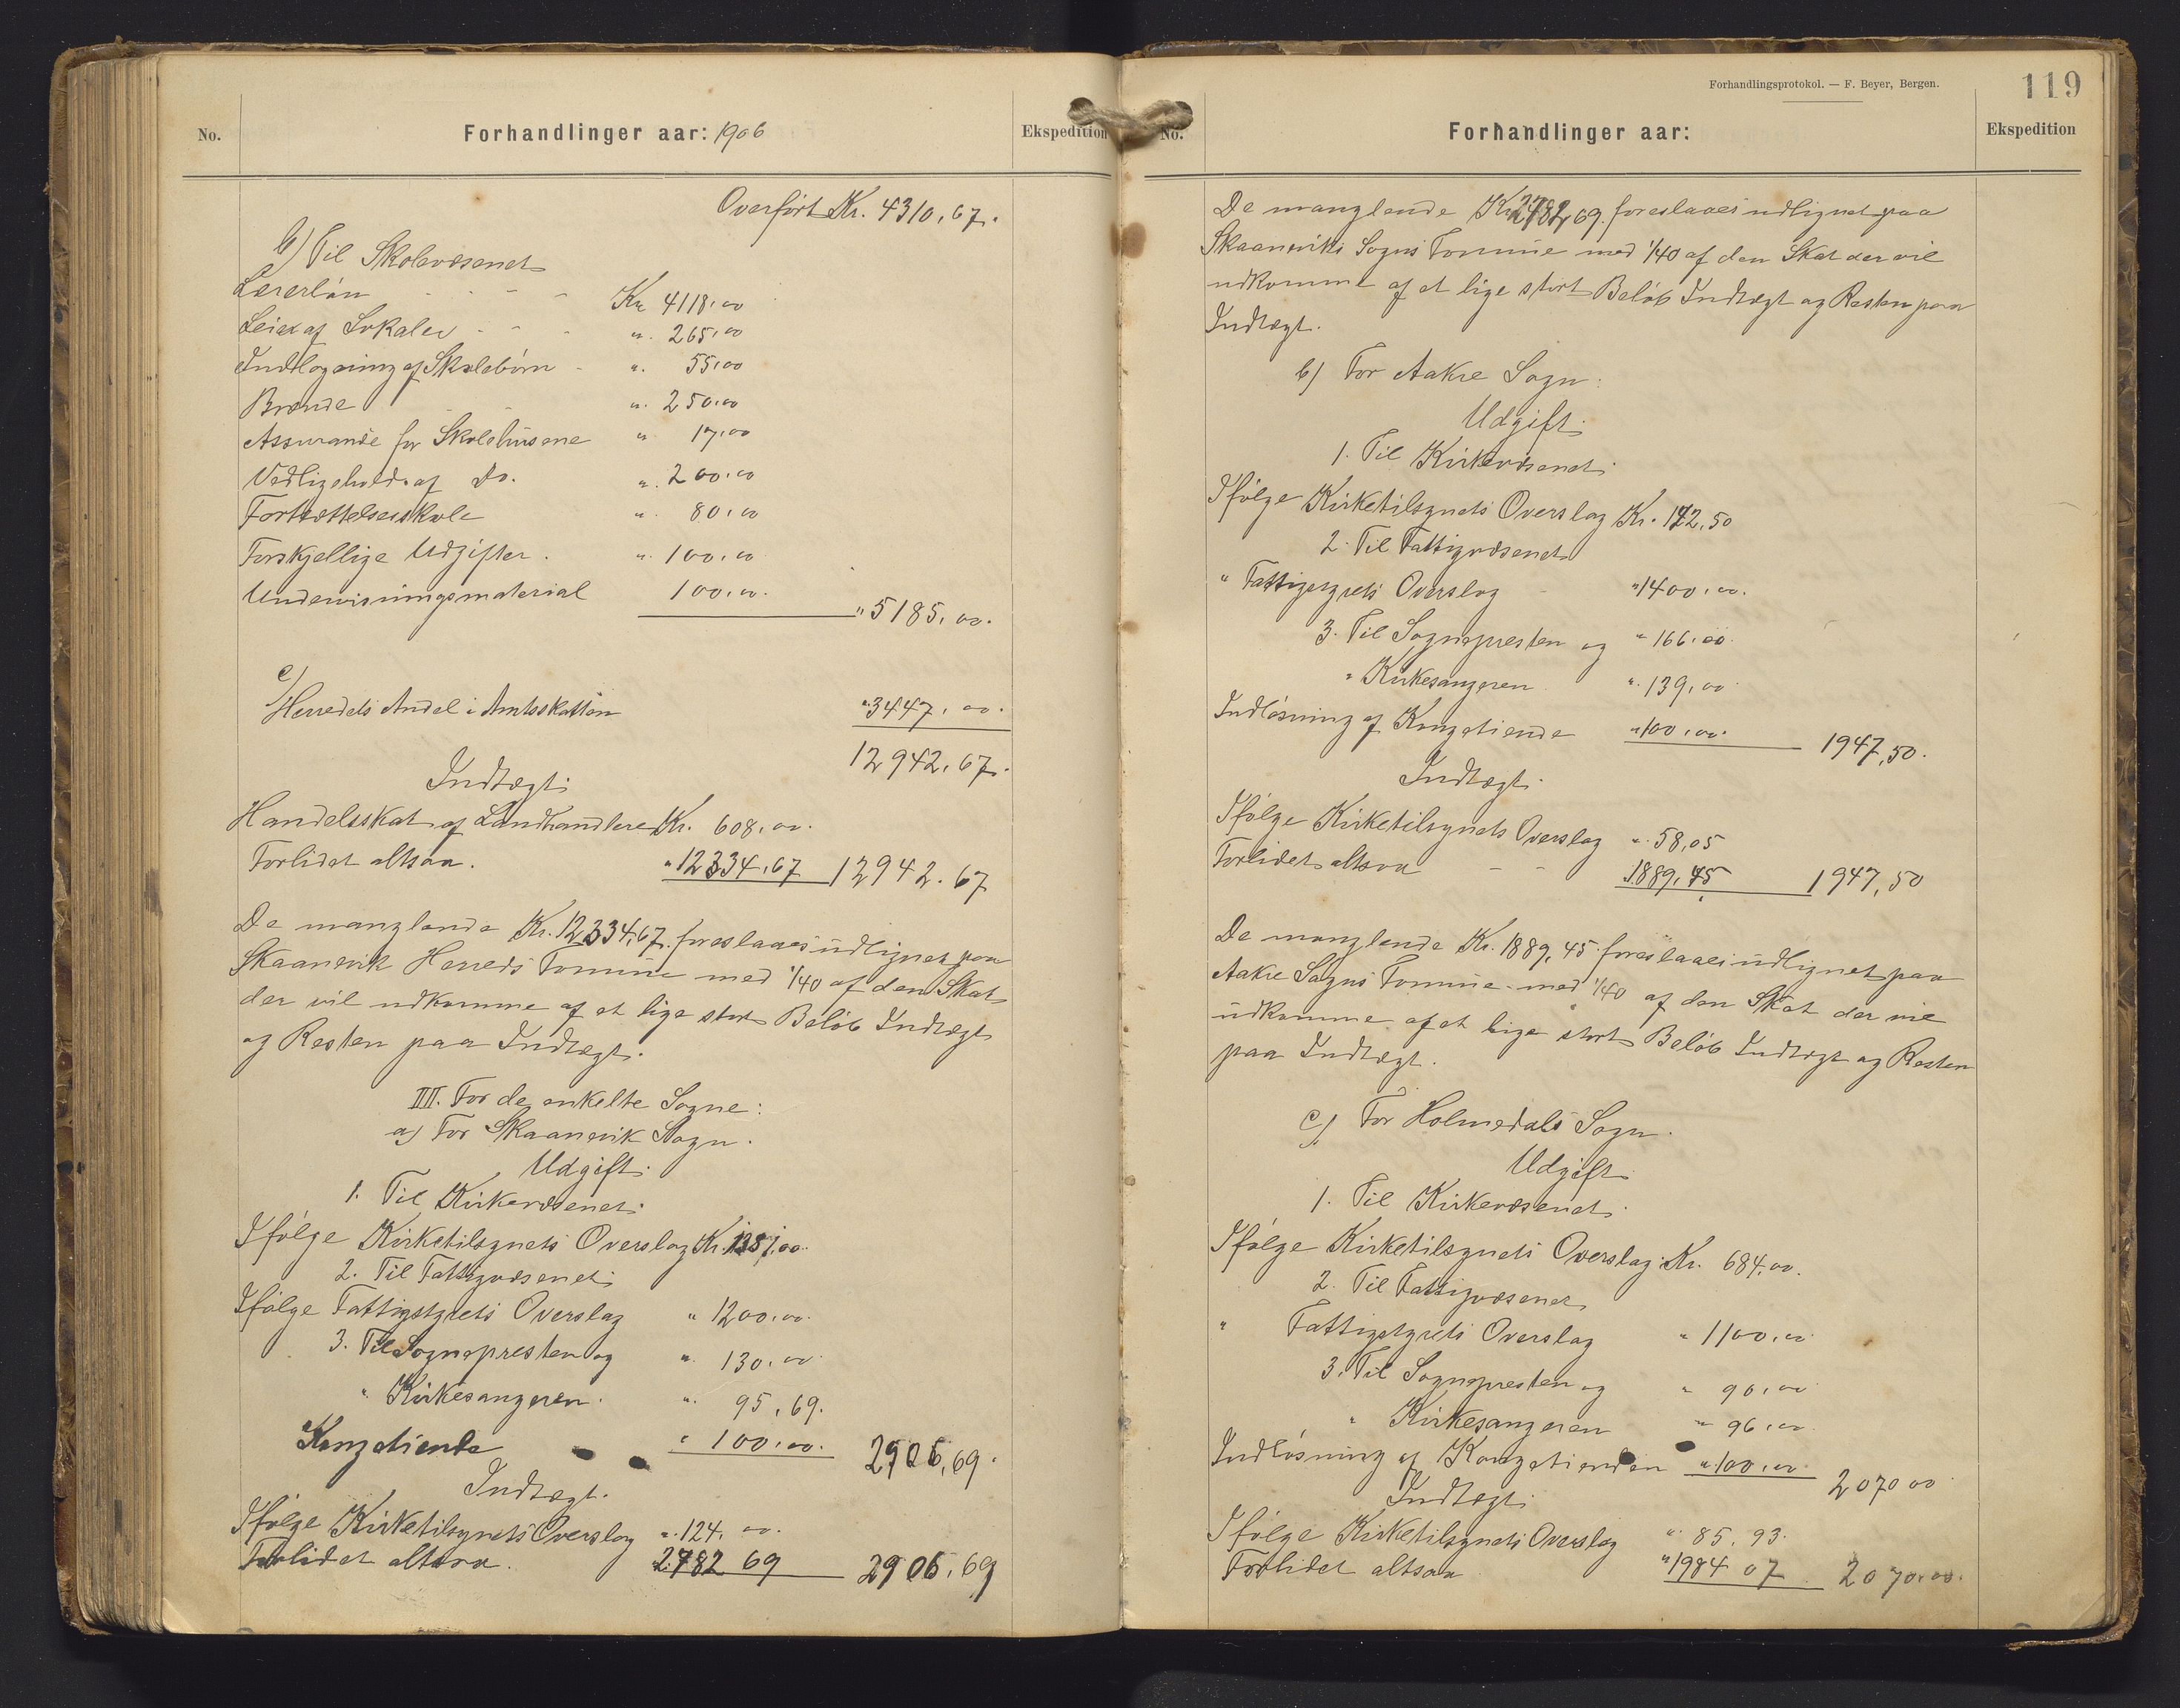 No.
Forhandlinger aar: 1906
Ekspedition
Overført Kr. 4310,67.
b) Til Skolevæsenet
Lærerløn - - - Kr 4118,00
Leie af Lokaler - - - " 265,00
Indlogering af Skolebørn - " 55,00
Brænde - - " 250,00
Assurance for Skolehusene " 17,00
Vedligehold af Do. " 200,00
Fortsættelsesskole " 80,00
Forskjellige Udgifter. " 100,00
Undervisningsmaterial 100,00. " 5185,00.
c)
Herredets Andel i Amtsskatten " 3447,00.
12942,67.
Indtægt:
Handelsskat af Landhandlere Kr. 608,00.
Forlidet altsaa. " 12334,67 12942.67
De manglende Kr. 12334,67. foreslaaes udlignet paa
Skaanevik Herreds Formue med 1/40 af den Skat
der vil udkomme af et lige stort Beløb Indtægt
og Resten paa Indtægt.
III. For de enkelte Sogne:
a) For Skaanevik Sogn.
Udgift:
1. Til Kirkevæsenet:
Ifølge Kirketilsynets Overslag Kr. 1381,00.
2. Til Fattigvæsenet:
Ifølge Fattigstyrets Overslag " 1200,00.
3. Til Sognepresten og " 130,00
" Kirkesangeren. " 95,69.
Kongetiende " 100,00. 2906,69.
Indtægt.
Ifølge Kirketilsynets Overslag " 124,00.
Forlidet altsaa. 2782 69 2906,69
Forhandlingsprotokol. — F. Beyer, Bergen.
119
No.
Forhandlinger aar:
Ekspedition
De manglende Kr. 2782,69. foreslaaes udlignet paa
Skaaneviks Sogns Formue med 1/40 af den Skat der vil
udkomme af et lige stort Beløb Indtægt og Resten paa
Indtægt.
b) For Aakre Sogn:
Udgift:
1. Til Kirkevæsenet:
Ifølge Kirketilsynets Overslag Kr. 142,50
2. Til Fattigvæsenet
" Fattigstyrets Overslag - " 1400,00.
3. Til Sognepresten og " 166,00.
" Kirkesangeren " 139,00
Indløsning af Kongetiende " 100,00. 1947,50.
Indtægt.
Ifølge Kirketilsynets Overslag " 58,05
Forlidet altsaa - - 1889,45 1947,50
De manglende Kr. 1889,45 foreslaaes udlignet paa
Aakre Sogns Formue med 1/40 af den Skat der vil
udkomme af et lige stort Beløb Indtægt og Resten
paa Indtægt.
c) For Holmedals Sogn.
Udgift:
1. Til Kirkevæsenet:
Ifølge Kirketilsynets Overslag Kr. 684,00.
2. Til Fattigvæsenet
" Fattigstyrets Overslag " 1100,00
3. Til Sognepresten og " 90,00
" Kirkesangeren " 96,00
Indløsning af Kongetienden " 100,00 2070 00
Indtægt:
Ifølge Kirketilsynets Overslag " 85,93.
Forlidet altsaa " 1984 07 2070.00.